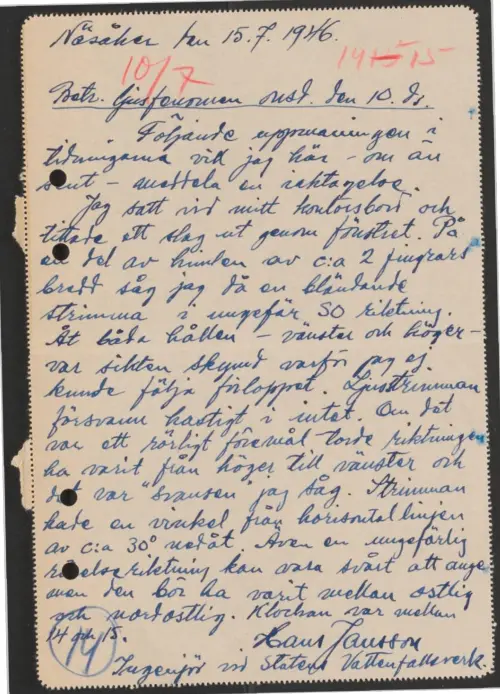 Näsåker den 15.7.1946.
10/7
14-15
Betr. ljusfenomen onsd. den 10. ds.
Följande uppmaningen i
tidningarna vill jag här – om än
sent – meddela en iakttagelse.
Jag satt vid mitt kontorsbord och
tittade ett slag ut genom fönstret. På
en del av himlen av c:a 2 fingrars
bredd såg jag då en bländande
strimma i ungefär SO riktning.
Åt båda hållen – vänster och höger –
var sikten skymd varför jag ej
kunde följa förloppet. Ljusstrimman
försvann hastigt i intet. Om det
var ett rörligt föremål torde riktningen
ha varit från höger till vänster och
det var "svansen" jag såg. Strimman
hade en vinkel från horisontallinjen
av c:a 30° nedåt. Även en ungefärlig
rörelseriktning kan vara svårt att ange
men den bör ha varit mellan ostlig
och nordostlig. Klockan var mellan
14 och 15.
Hans Jansson
Ingenjör vid Statens Vattenfallsverk.